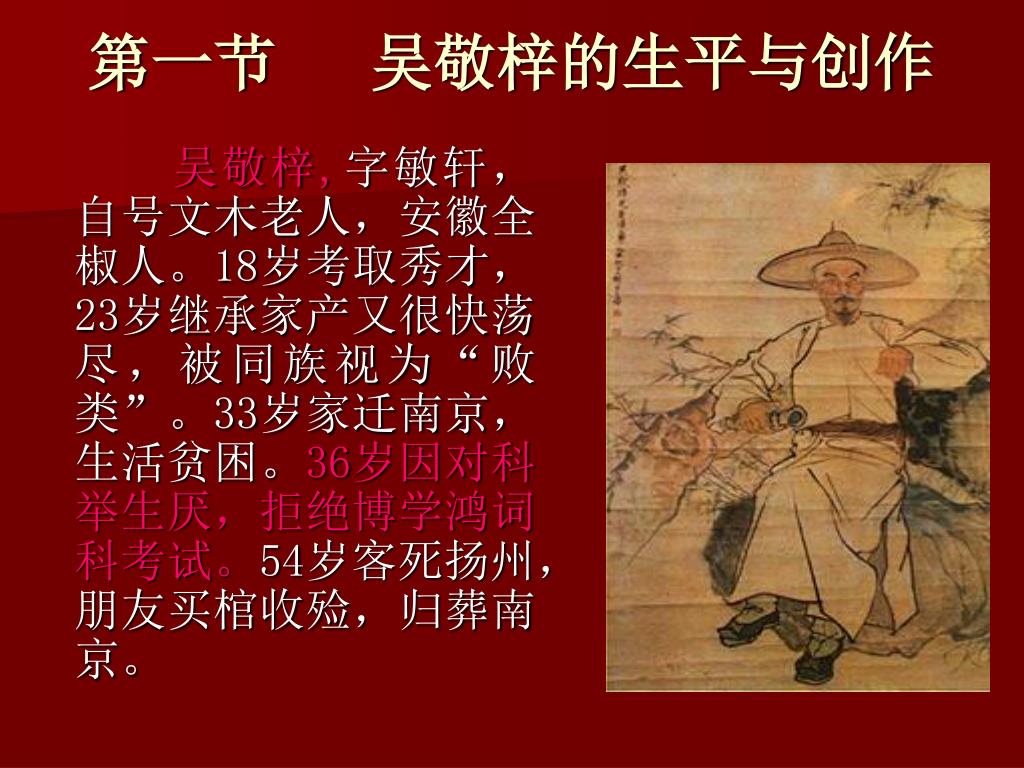 第一节 吴敬梓的生平与创作
吴敬梓,字敏轩，
自号文木老人，安徽全
椒人。18岁考取秀才，
23岁继承家产又很快荡
尽，被同族视为“败
类”。33岁家迁南京，
生活贫困。36岁因对科
举生厌，拒绝博学鸿词
科考试。54岁客死扬州，
朋友买棺收殓，归葬南
京。